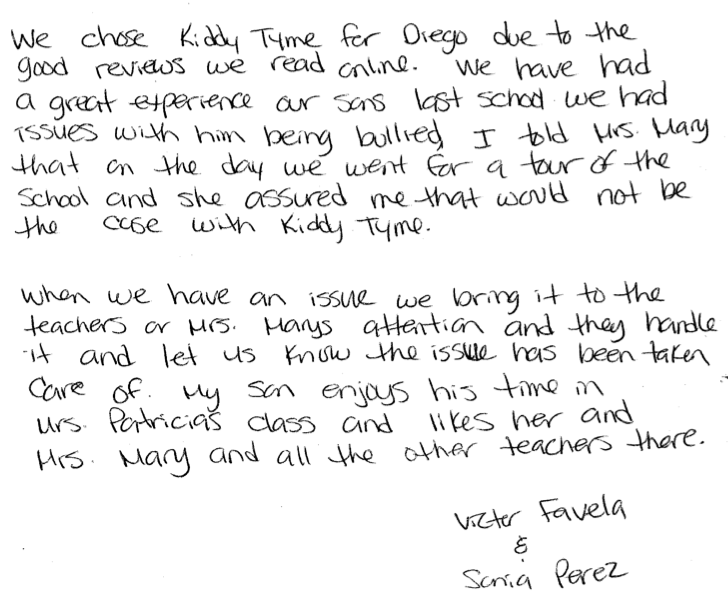 We chose Kiddy Tyme for Diego due to the
good reviews we read online. We have had
a great experience our sons last school we had
issues with him being bullied, I told Mrs. Mary
that on the day we went for a tour of the
School and she assured me that would not be
the case with Kiddy Tyme.
When we have an issue we bring it to the
teachers or Mrs. Marys attention and they handle
it and let us know the issue has been taken
Care of. My son enjoys his time in
Mrs. Patricias class and likes her and
Mrs. Mary and all the other teachers there.
Victer Favela
&
Sonia Perez